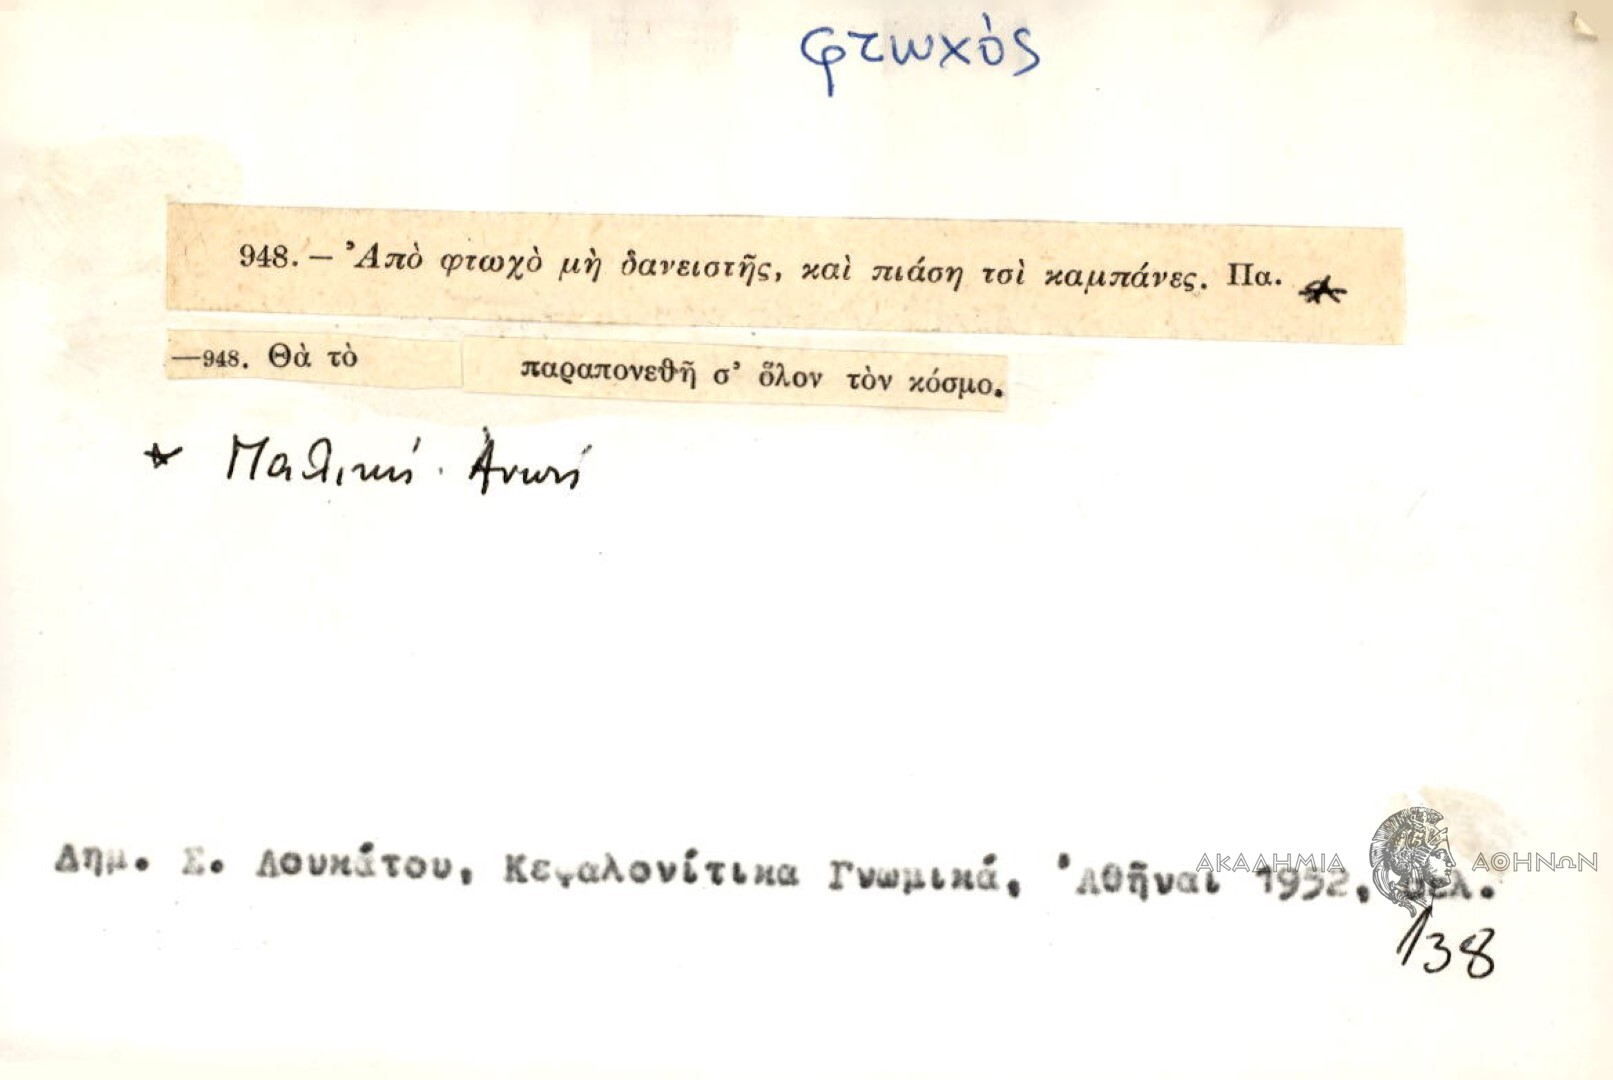 φτωχός
948.— Ἀπὸ φτωχὸ μὴ δανειστῆς, καὶ πιάση τσὶ καμπάνες. Πα. *
—948. Θὰ τὸ παραπονεθῆ σ' ὅλον τὸν κόσμο.
* Παλική
Δημ. Σ. Λουκάτου, Κεφαλονίτικα Γνωμικά, Ἀθῆναι 1952, σελ.
138
ΑΚΑΔΗΜΙΑ ΑΘΗΝΩΝ